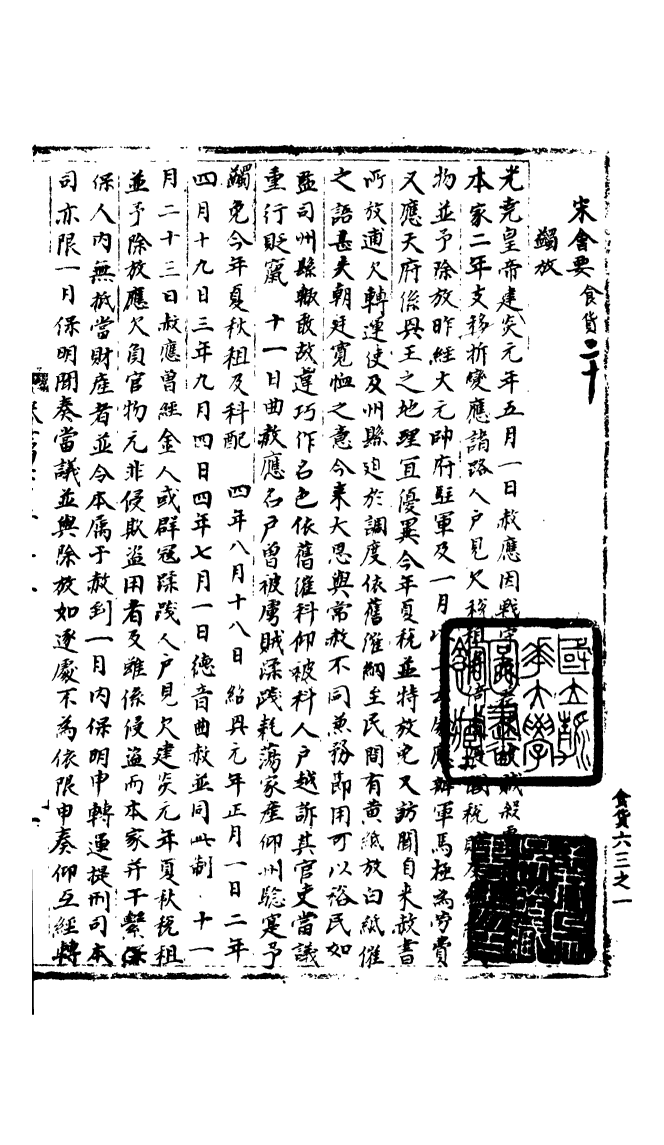 宋會要 食貨二十
蠲放
光堯皇帝建炎元年五月一日赦應因戰
本家二年支移折變應諸路人戶見欠稅租
物並予除放昨經大元帥府駐軍及一月 軍馬極為勞費
又應天府係興王之地理宜優異今年夏稅並特放免又訪聞自來赦書
所放逋欠轉運使及州縣迫於調度依舊催納至民間有黃紙放白紙催
之語甚失朝廷寬恤之意今來大恩與常赦不同兼務即用可以裕民如
監司州縣輒敢故違巧作名色依舊催科仰被科人戶越訴其官吏當議
重行貶竄 十一日曲赦應名戶曾被虜賊蹂踐耗蕩家產仰州驗寔予
蠲免今年夏秋租及科配 四年八月十八日紹興元年正月一日二年
四月十九日三年九月四日四年七月一日德音曲赦並同此制 十一
月二十三日赦應曾經金人或群冠蹂踐人戶見欠建炎元年夏秋稅租
並予除放應欠負官物元非侵欺盜用者及雖係侵盜而本家并干繫保
保人內無抵當財產者並令本属于赦到一月內保明申轉運提刑司本
司亦限一月保明聞奏當議並與除放如逐處不為依限申奏仰互經轉
國立
華大學
食貨六三之一